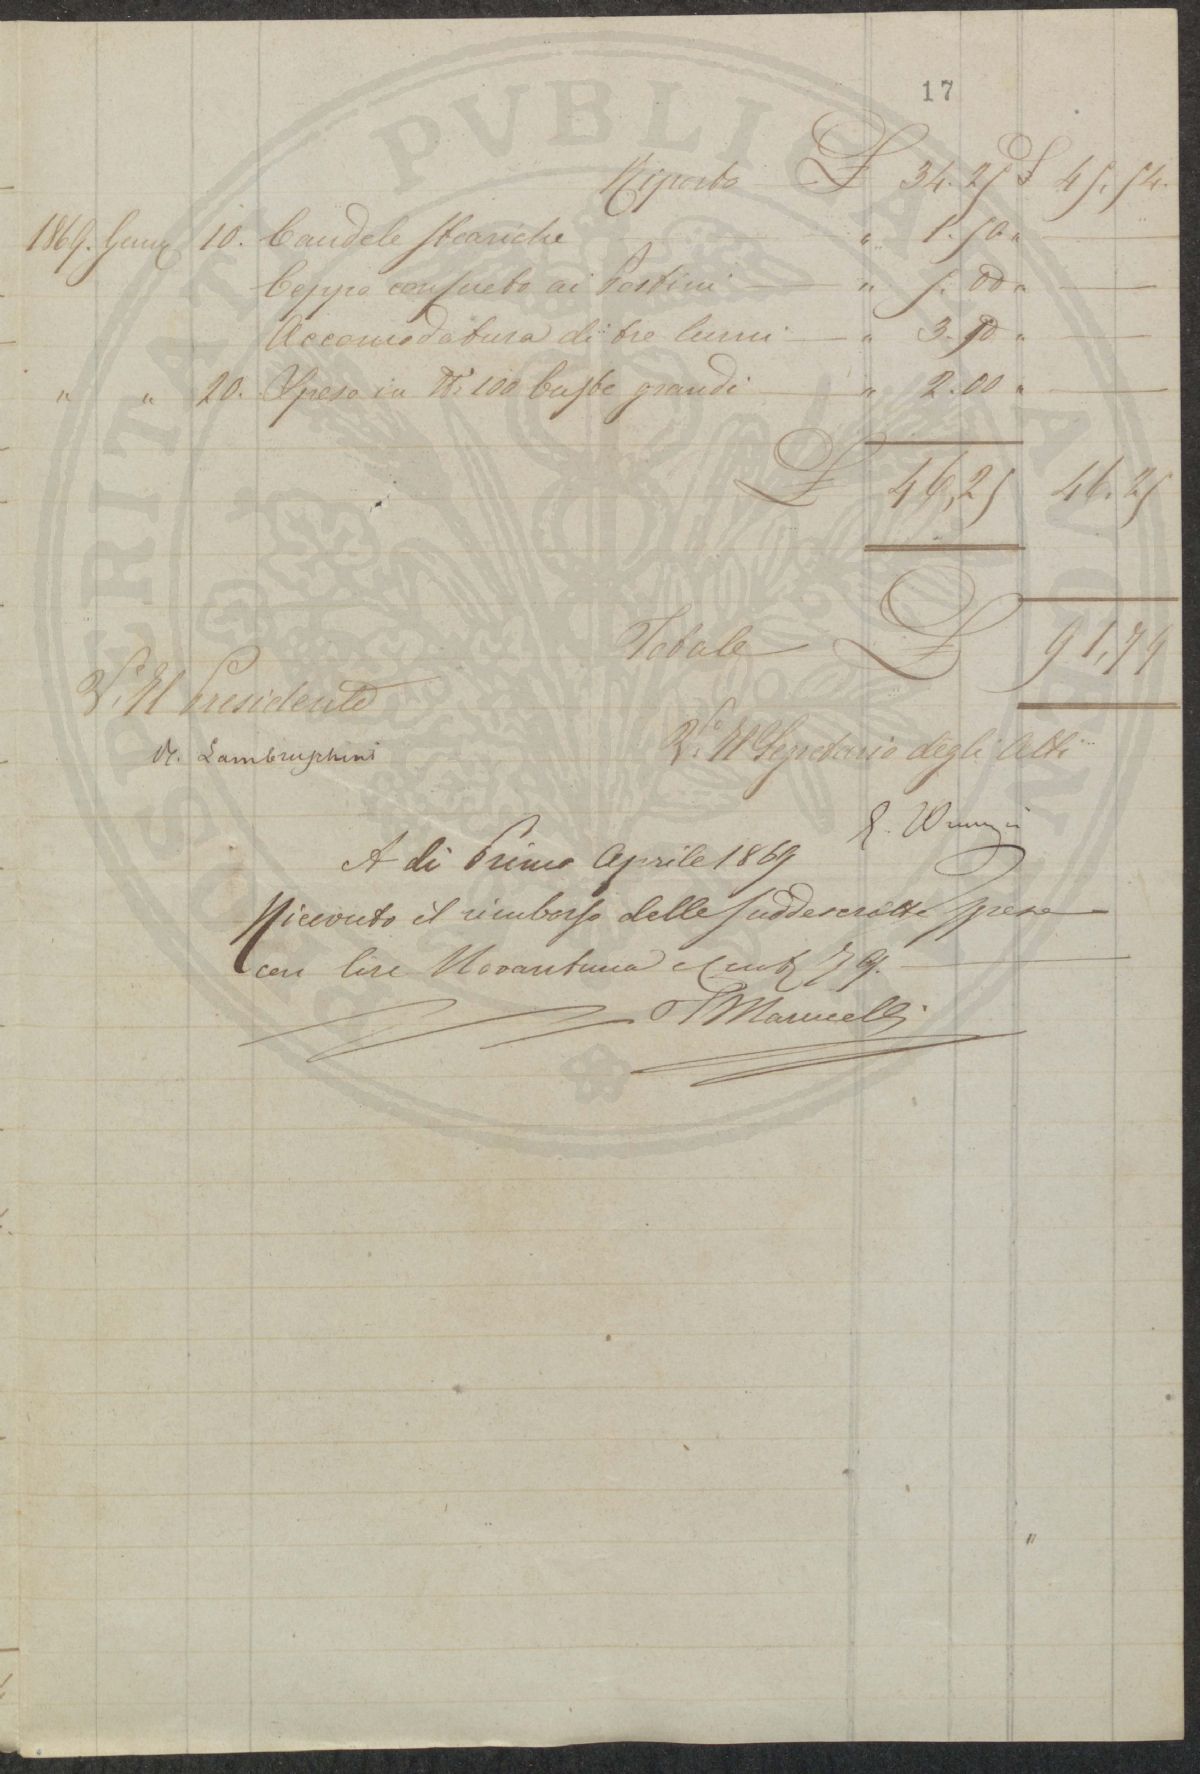 PROSPERITATI PVBLICAE AVGENDAE
17
Riporto £ 34.25 £ 45,54.
1869. Genn. 10. Candele steariche " 1.50 "
Ceppo consueto ai Postini " 5.00 "
Accomodatura di tre lumi " 3.50 "
" " 20. Spesa in N. 100 buste grandi " 2.00 "
£ 46,25 46.25
Totale £ 91,79
V. Il Presidente
R. Lambruschini
V. Il Segretario degli Atti
A di Primo Aprile 1869
Ricevuto il rimborso delle suddescritte spese
con lire Novantuna e cent. 79.
Marucelli